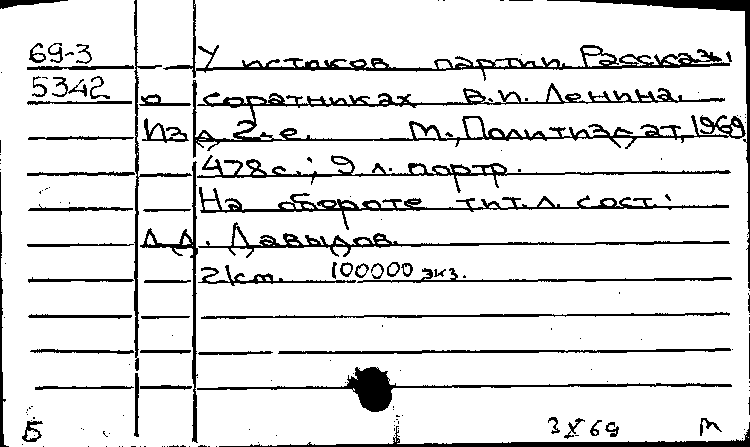 69-3 У истоков партии. Рассказы
5342 о соратниках В.И. Ленина.
Изд. 2-е. М., Политиздат, 1969
478 с.; 9 л. портр.
На обороте тит. л. сост.:
Л.Д. Давыдов.
21 cm. 100000 экз.
Б 3 X 69 М